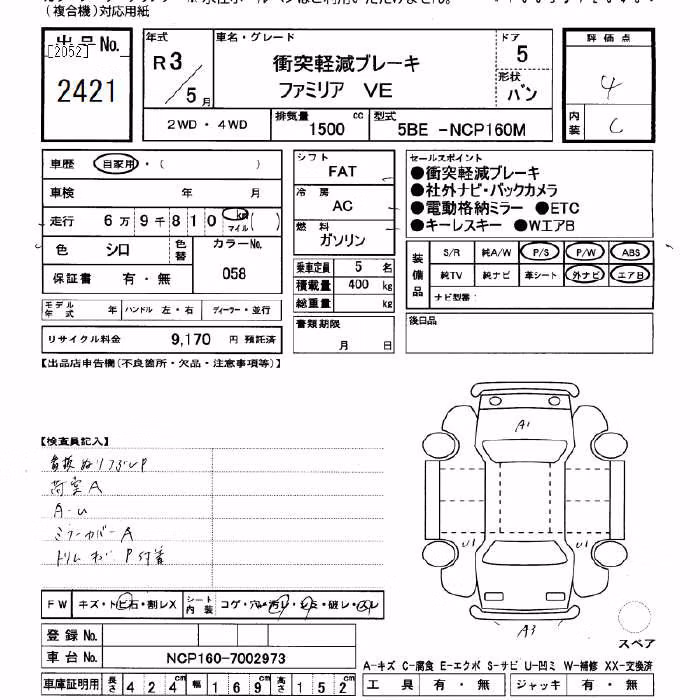 (複合機)対応用紙
出品No.
[2052]
2421
年式
R3/5月
車名・グレード
衝突軽減ブレーキ
ファミリア VE
ドア
5
形状
バン
評価点
4
内装
C
2WD・4WD
排気量 1500 cc
型式 5BE-NCP160M
車歴 自家用・( )
車検 年 月
走行 6万9千810 km マイル( )
色 シロ 色替 カラーNo. 058
保証書 有・無
モデル年式 年 ハンドル 左・右 ディーラー・並行
リサイクル料金 9,170 円 預託済
シフト
FAT
冷房
AC
燃料
ガソリン
乗車定員 5 名
積載量 400 kg
総重量 kg
書類期限
月 日
セールスポイント
●衝突軽減ブレーキ
●社外ナビ・バックカメラ
●電動格納ミラー ●ETC
●キーレスキー ●WエアB
装備品
S/R 純A/W P/S P/W ABS
純TV 純ナビ 革シート 外ナビ エアB
ナビ型番:
後日品
【出品店申告欄(不良箇所・欠品・注意事項等)】
【検査員記入】
荷室A
A-U
ミラーカバーA
A1
U1
U1
A3
スペア
FW キズ・トビ石・割レX シート内装 コゲ・穴・汚レ・シミ・破レ・
登録No.
車台No. NCP160-7002973
車庫証明用 長さ 424cm 幅 169cm 高さ 152cm
A-キズ C-腐食 E-エクボ S-サビ U-凹ミ W-補修 XX-交換済
工具 有・無 ジャッキ 有・無